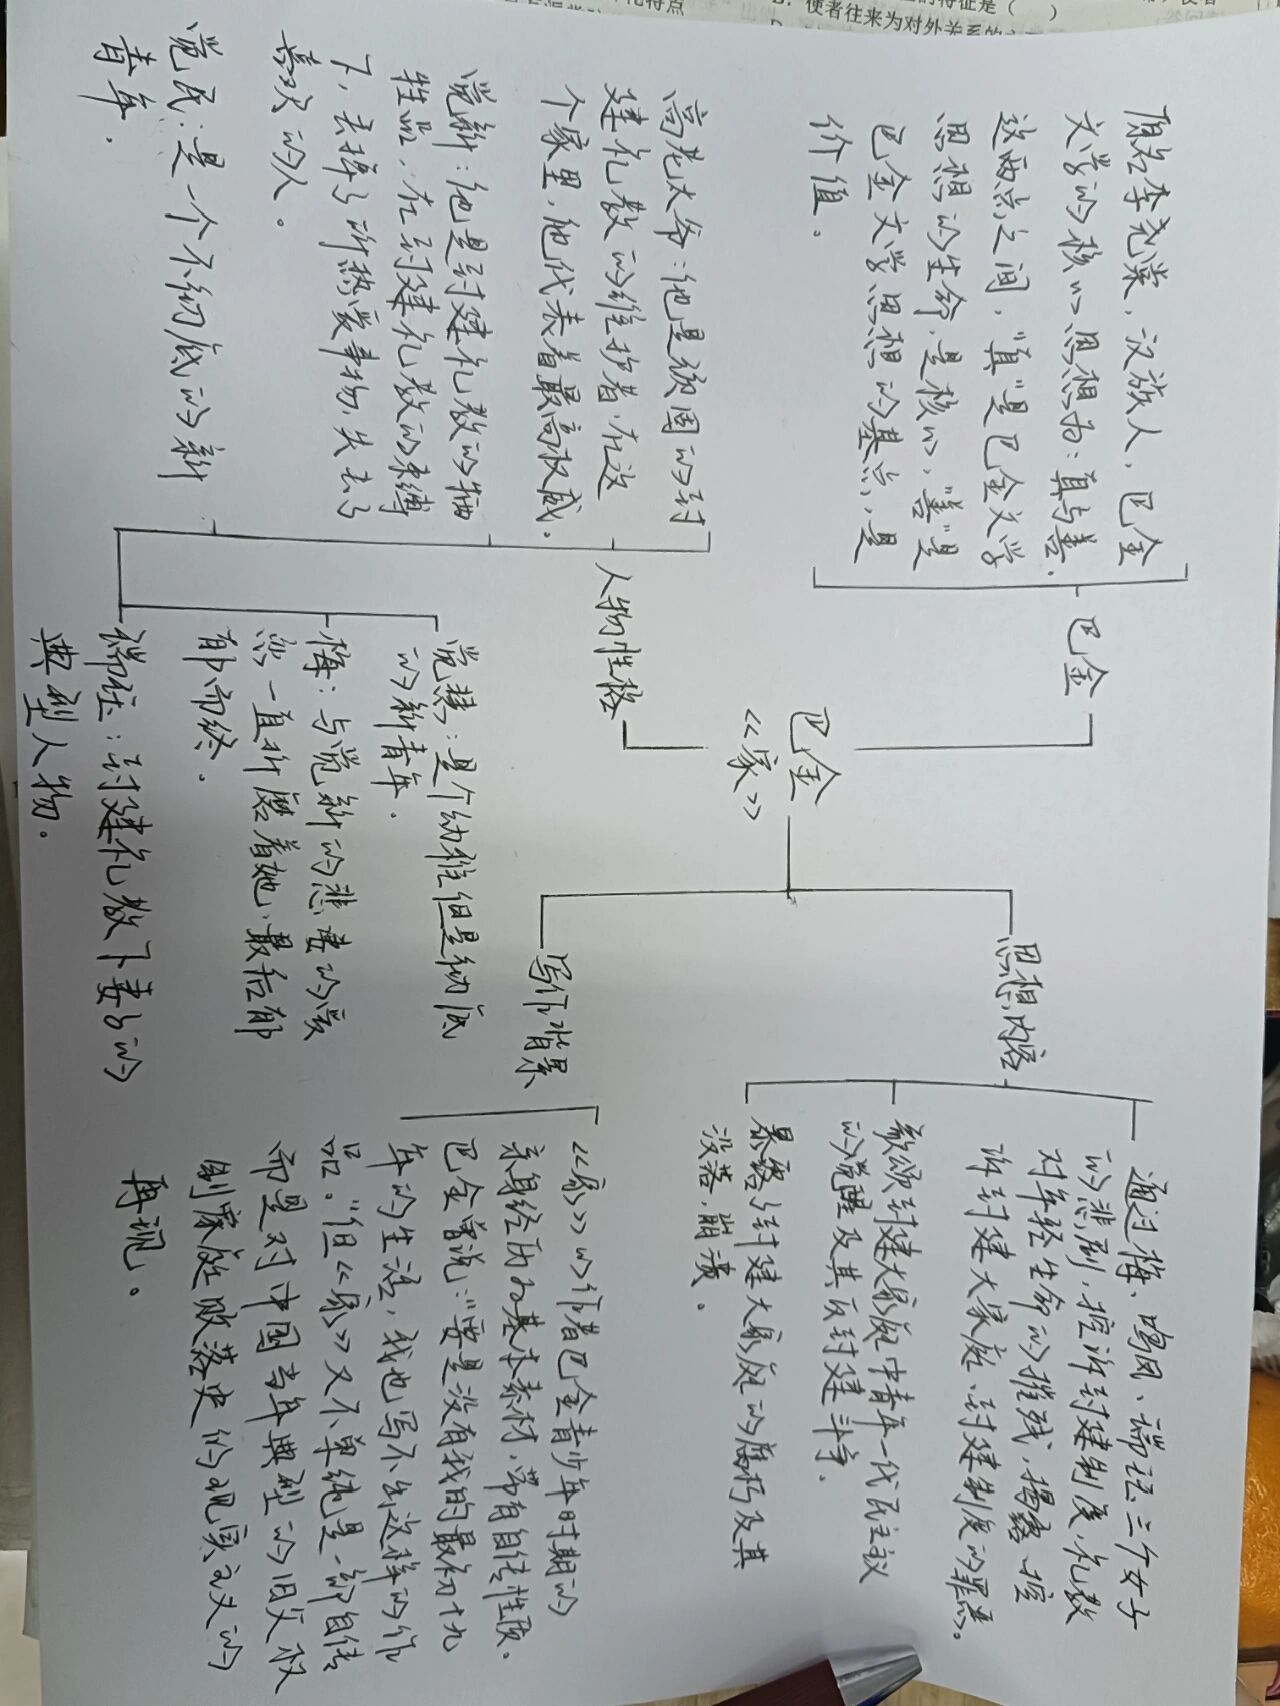 巴金
《家》
巴金
原名李尧棠，汉族人，巴金
文学的核心思想为：真与善。
这两点之间，“真”是巴金文学
思想的生命，是核心，“善”是
巴金文学思想的基点，是
价值。
人物性格
高老太爷：他是顽固的封
建礼教的维护者，在这
个家里，他代表着最高权威。
觉新：他是封建礼教的牺
牲品，在封建礼教的束缚
下，去掉了所热爱事物，失去了
喜欢的人。
觉民：是一个不彻底的新
青年。
觉慧：是个幼稚但是彻底
的新青年。
梅：与觉新的悲凄的爱
恋一直折磨着她，最后郁
郁而终。
瑞珏：封建礼教下妻子的
典型人物。
思想内容
通过梅、鸣凤、瑞珏三个女子
的悲剧，控诉封建制度，礼教
对年轻生命的摧残，揭露、控
诉封建大家庭、封建制度的罪恶。
歌颂封建大家庭中青年一代民主议
的觉醒及其反封建斗争。
暴露了封建大家庭的腐朽及其
没落，崩溃。
写作背景
《家》的作者巴金青少年时期的
亲身经历为基本素材，带有自传性质。
巴金曾说：“要是没有我的最初十九
年的生活，我也写不出这样的作
品。”但《家》又不单纯是一部自传
而是对中国当年典型的旧父权
制家庭败落史的现实主义的
再现。
的特征是（ ）
使者往来为对外关系的
化特点